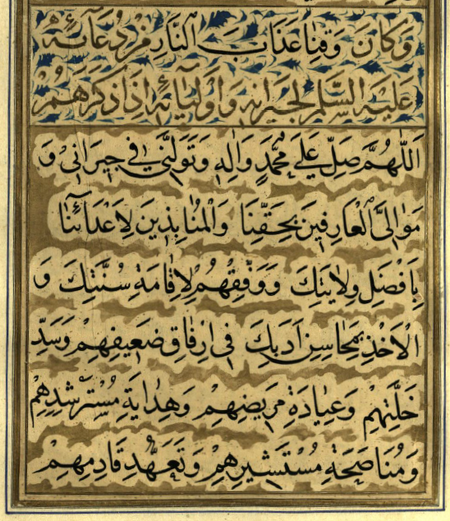 وَكَانَ وَقِنَا عَذَابَ النَّارِ مِنْ دُعَائِهِ
عَلَيْهِ السَّلَمُ لِجِيرَانِهِ وَاَوْلِيَائِهِ اِذَا ذَكَرَهُمْ
اَللّٰهُمَّ صَلِّ عَلٰى مُحَمَّدٍ وَاٰلِهِ وَتَوَلَّنِي فِي جِيرَانِي وَ
مَوَالِيَّ الْعَارِفِينَ بِحَقِّنَا وَالْمُنَابِذِينَ لِاَعْدَائِنَا
بِاَفْضَلِ وِلَايَتِكَ وَوَفِّقْهُمْ لِاِقَامَةِ سُنَّتِكَ وَ
الْاَخْذِ بِمَحَاسِنِ اَدَبِكَ فِي اِرْفَاقِ ضَعِيفِهِمْ وَسَدِّ
خَلَّتِهِمْ وَعِيَادَةِ مَرِيضِهِمْ وَهِدَايَةِ مُسْتَرْشِدِهِمْ
وَمُنَاصَحَةِ مُسْتَشِيرِهِمْ وَتَعَهُّدِ قَادِمِهِمْ